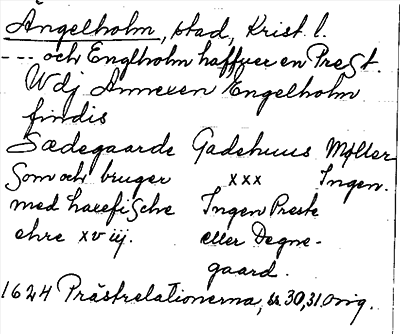 Ängelholm, stad, Krist. l.
--- och Englholm haffuer en Prest.
Wdj Annexen Engelholm
findis
Sædegaarde Gadehuus Møller
Som och bruger xxx Ingen.
med haefische Ingen Preste
ehre xviij. eller Degne-
gaard.
1624 Prästrelationerna, s. 30, 31 orig.